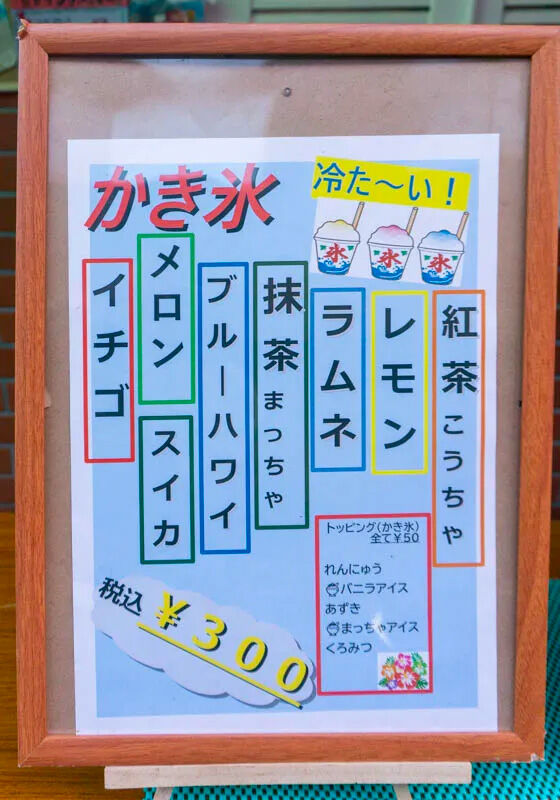 かき氷
冷た〜い！
氷
氷
氷
紅茶こうちゃ
レモン
ラムネ
抹茶まっちゃ
ブルーハワイ
メロン
スイカ
イチゴ
トッピング(かき氷)
全て¥50
れんにゅう
バニラアイス
あずき
まっちゃアイス
くろみつ
税込
¥300